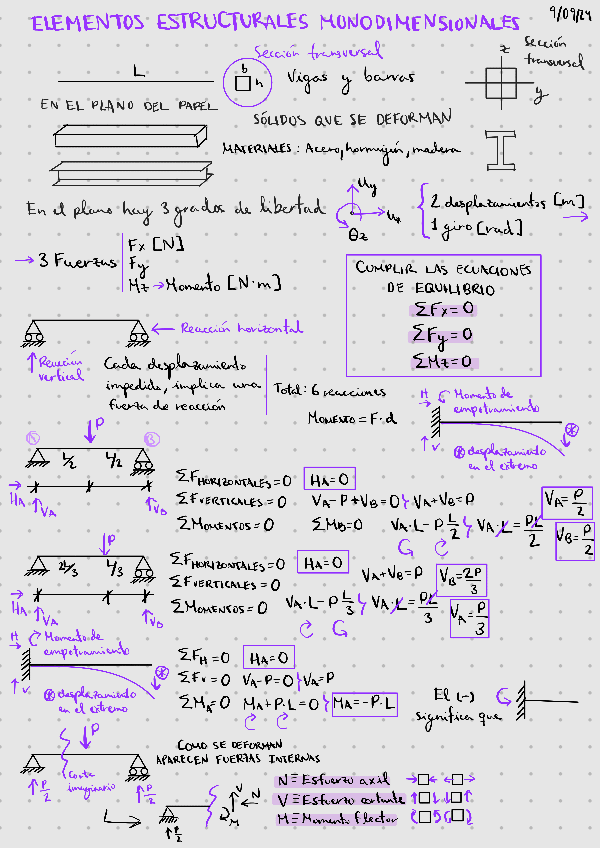 ELEMENTOS ESTRUCTURALES MONODIMENSIONALES
9/09/24
Sección transversal
L
b
h
Vigas y barras
z
y
Sección transversal
EN EL PLANO DEL PAPEL
SÓLIDOS QUE SE DEFORMAN
MATERIALES: Acero, hormigón, madera
En el plano hay 3 grados de libertad
Uy
Ux
θz
2 desplazamientos [m]
1 giro [rad]
→ 3 Fuerzas
Fx [N]
Fy
Mz → Momento [N·m]
CUMPLIR LAS ECUACIONES
DE EQUILIBRIO
ΣFx=0
ΣFy=0
ΣMz=0
← Reacción horizontal
↑ Reacción
vertical
Cada desplazamiento
impedido, implica una
fuerza de reacción
Total: 6 reacciones
MOMENTO = F·d
H → Momento de
empotramiento
↑ V
⊛ desplazamiento
en el extremo
P
A
B
L/2
L/2
HA
VA
VB
ΣFHORIZONTALES=0
HA=0
ΣFVERTICALES=0
VA-P+VB=0
VA+VB=P
ΣMOMENTOS=0
ΣMB=0
VA·L-P L/2
VA·L=PL/2
VA=P/2
VB=P/2
P
2L/3
L/3
HA
VA
VB
ΣFHORIZONTALES=0
HA=0
ΣFVERTICALES=0
VA+VB=P
VB=2P/3
ΣMOMENTOS=0
VA·L-P L/3
VA·L=PL/3
VA=P/3
H Momento de
empotramiento
↑ V
⊛ desplazamiento
en el extremo
ΣFH=0
HA=0
ΣFv=0
VA-P=0
VA=P
ΣMA=0
MA+P·L=0
MA=-P·L
El (-)
significa que
P
Corte
imaginario
P/2
P/2
COMO SE DEFORMAN
APARECEN FUERZAS INTERNAS
P/2
V
N
M
N ≡ Esfuerzo axil
V ≡ Esfuerzo cortante
M ≡ Momento flector